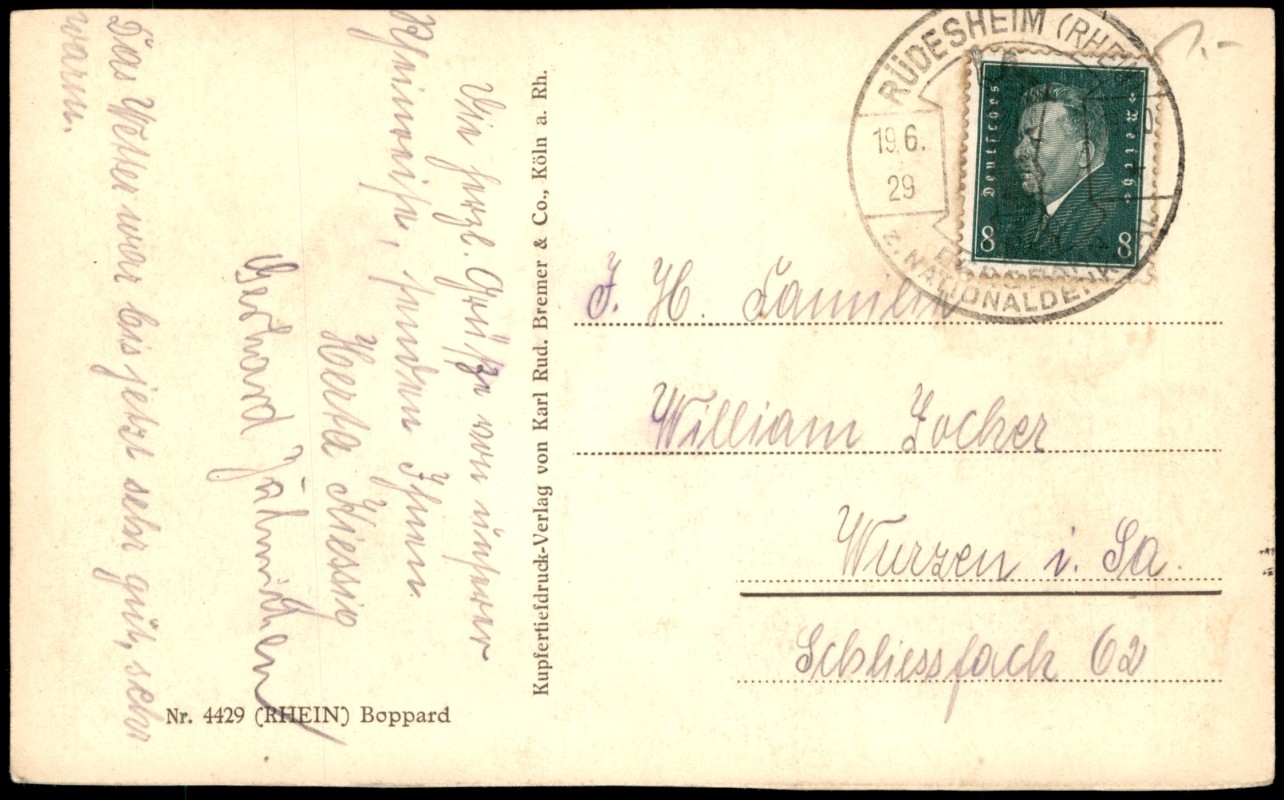 Die herzl. Grüße von unserer
Rheinreise, senden Ihnen
Herta Kiessig
Gerhard Jähnichen
Das Wetter war bis jetzt sehr gut, sehr
warm.
Nr. 4429 (RHEIN) Boppard
Kupfertiefdruck-Verlag von Karl Rud. Bremer & Co., Köln a. Rh.
RÜDESHEIM (RHEIN)
19.6.
29
NATIONALDENKMAL
Deutsches Reich
8 8
F. H. Familie
William Zocher
Wurzen i. Sa.
Schliessfach 62